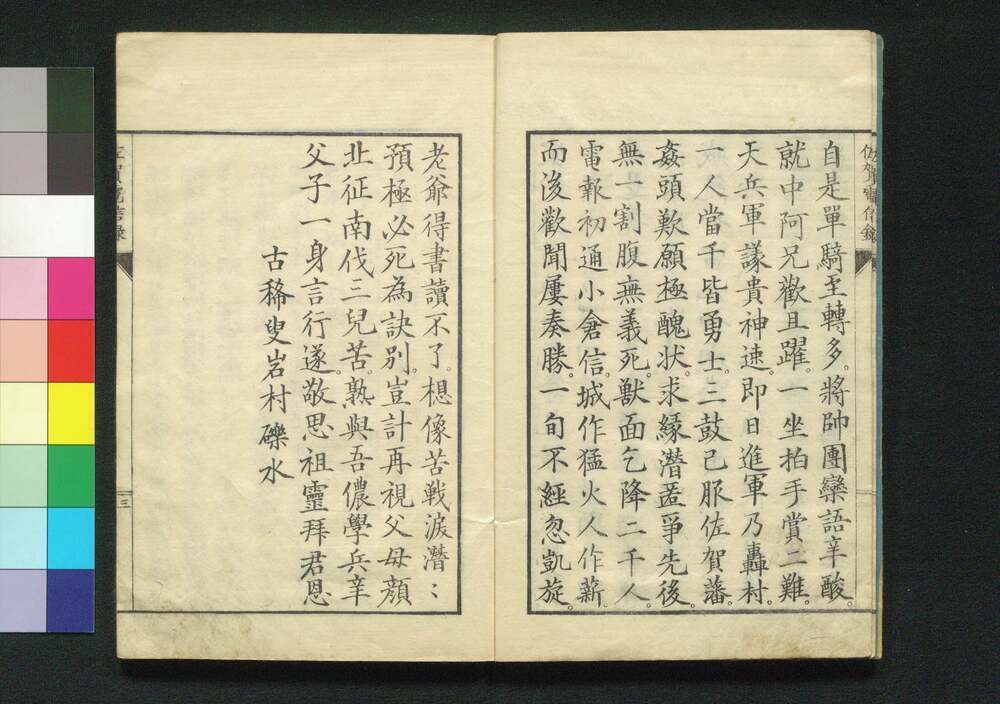 佐賀電信錄
自是單騎至轉多。將帥團欒語辛酸。
就中阿兄歡且躍。一坐拍手賞二難。
天兵軍謀貴神速。即日進軍乃轟村。
一人當千皆勇士。三鼓已服佐賀藩。
姦頭歎願極醜状。求縁潜匿爭先後。
無一割腹無義死。獸面乞降二千人。
電報初通小倉信。城作猛火人作薪。
而後歡聞屢奏勝。一旬不經忽凱旋。
老爺得書讀不了。想像苦戦淚潸〻
預極必死為訣別。豈計再視父母顔
北征南伐三兒苦。熟與吾儂學兵羊
父子一身言行遂。敬思祖靈拜君恩
古稀叟岩村礫水
三